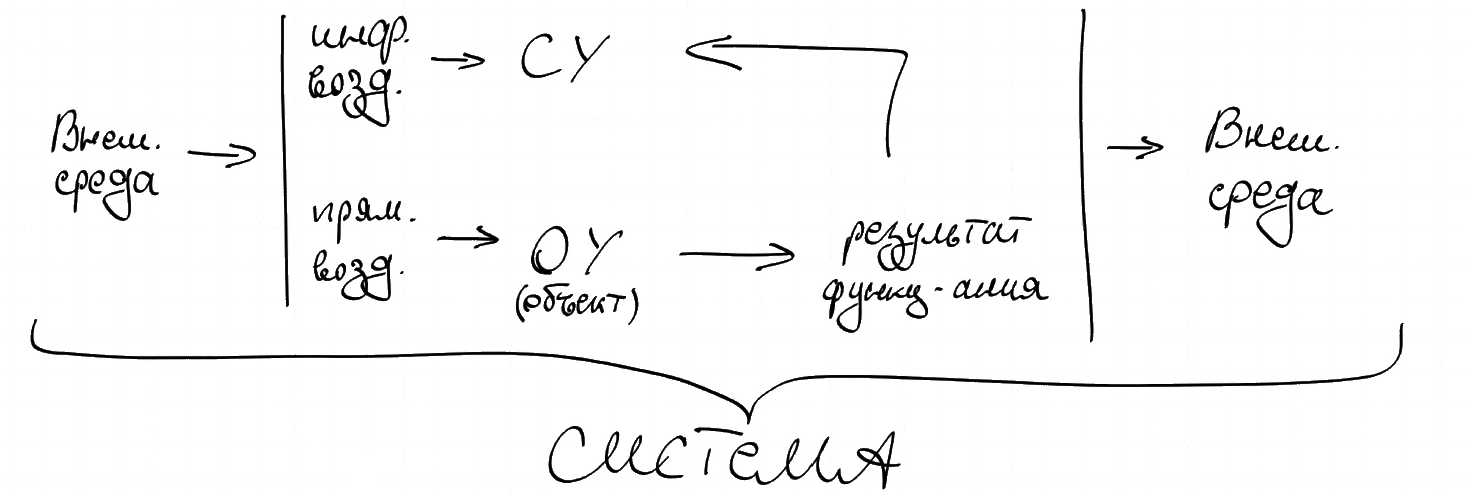 Внеш.
среда
инфр.
возд.
СУ
прям.
возд.
ОУ
(объект)
результат
функц-ания
Внеш.
среда
СИСТЕМА